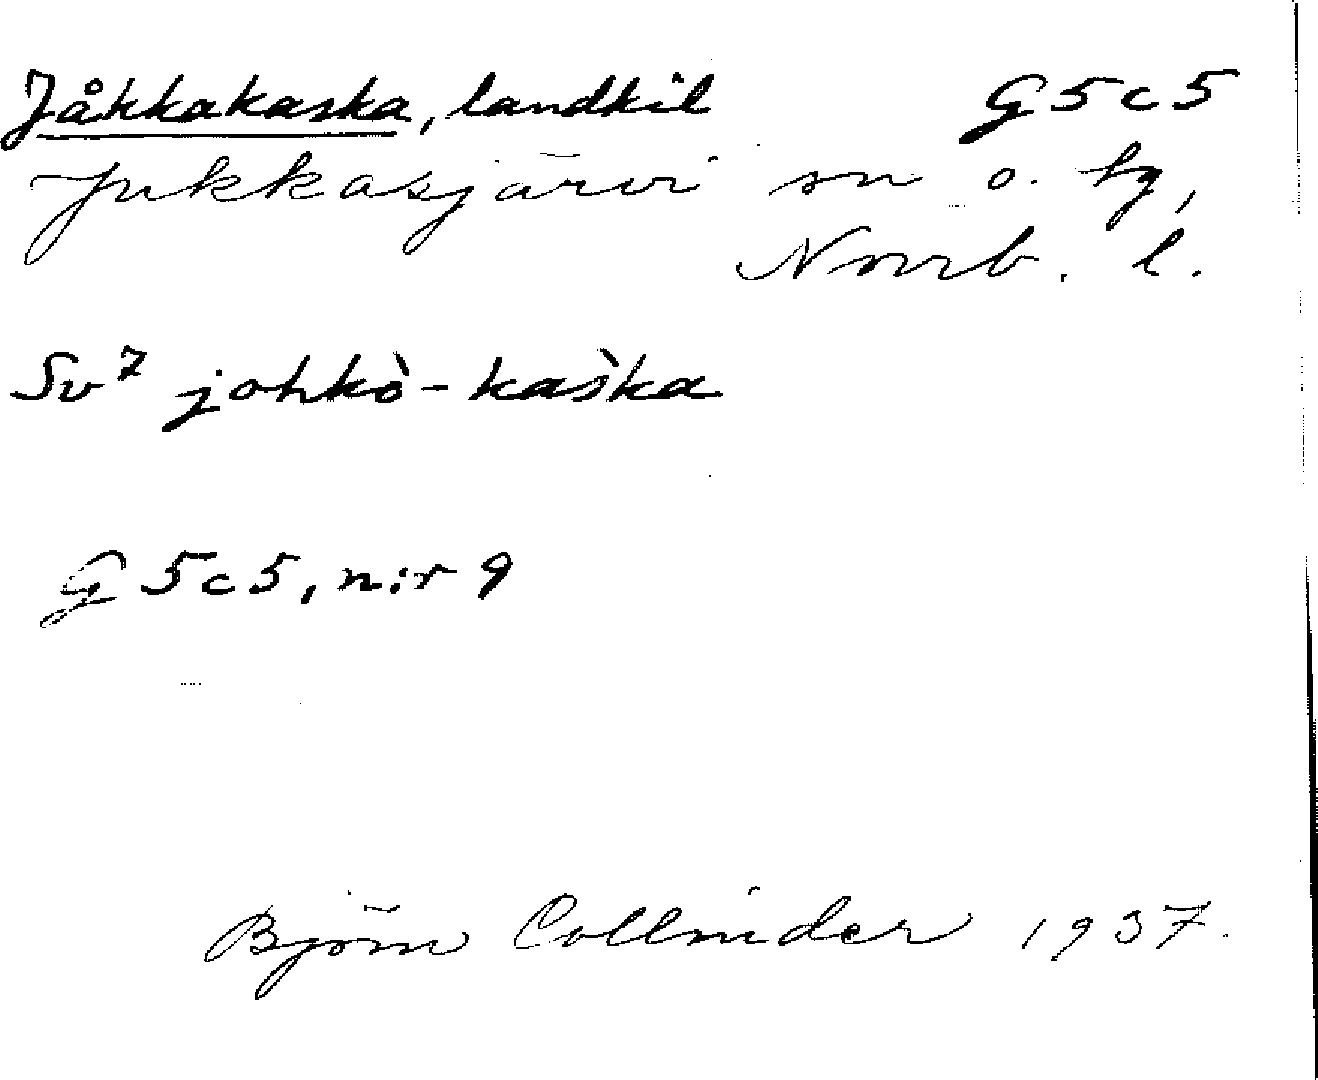 Jåkkakaska, landkil G5c5
Jukkasjärvi sn o. tg,
Norrb. l.
Sv⁷ johkò-kaška
G5c5, n:r 9
Björn Collinder 1937.